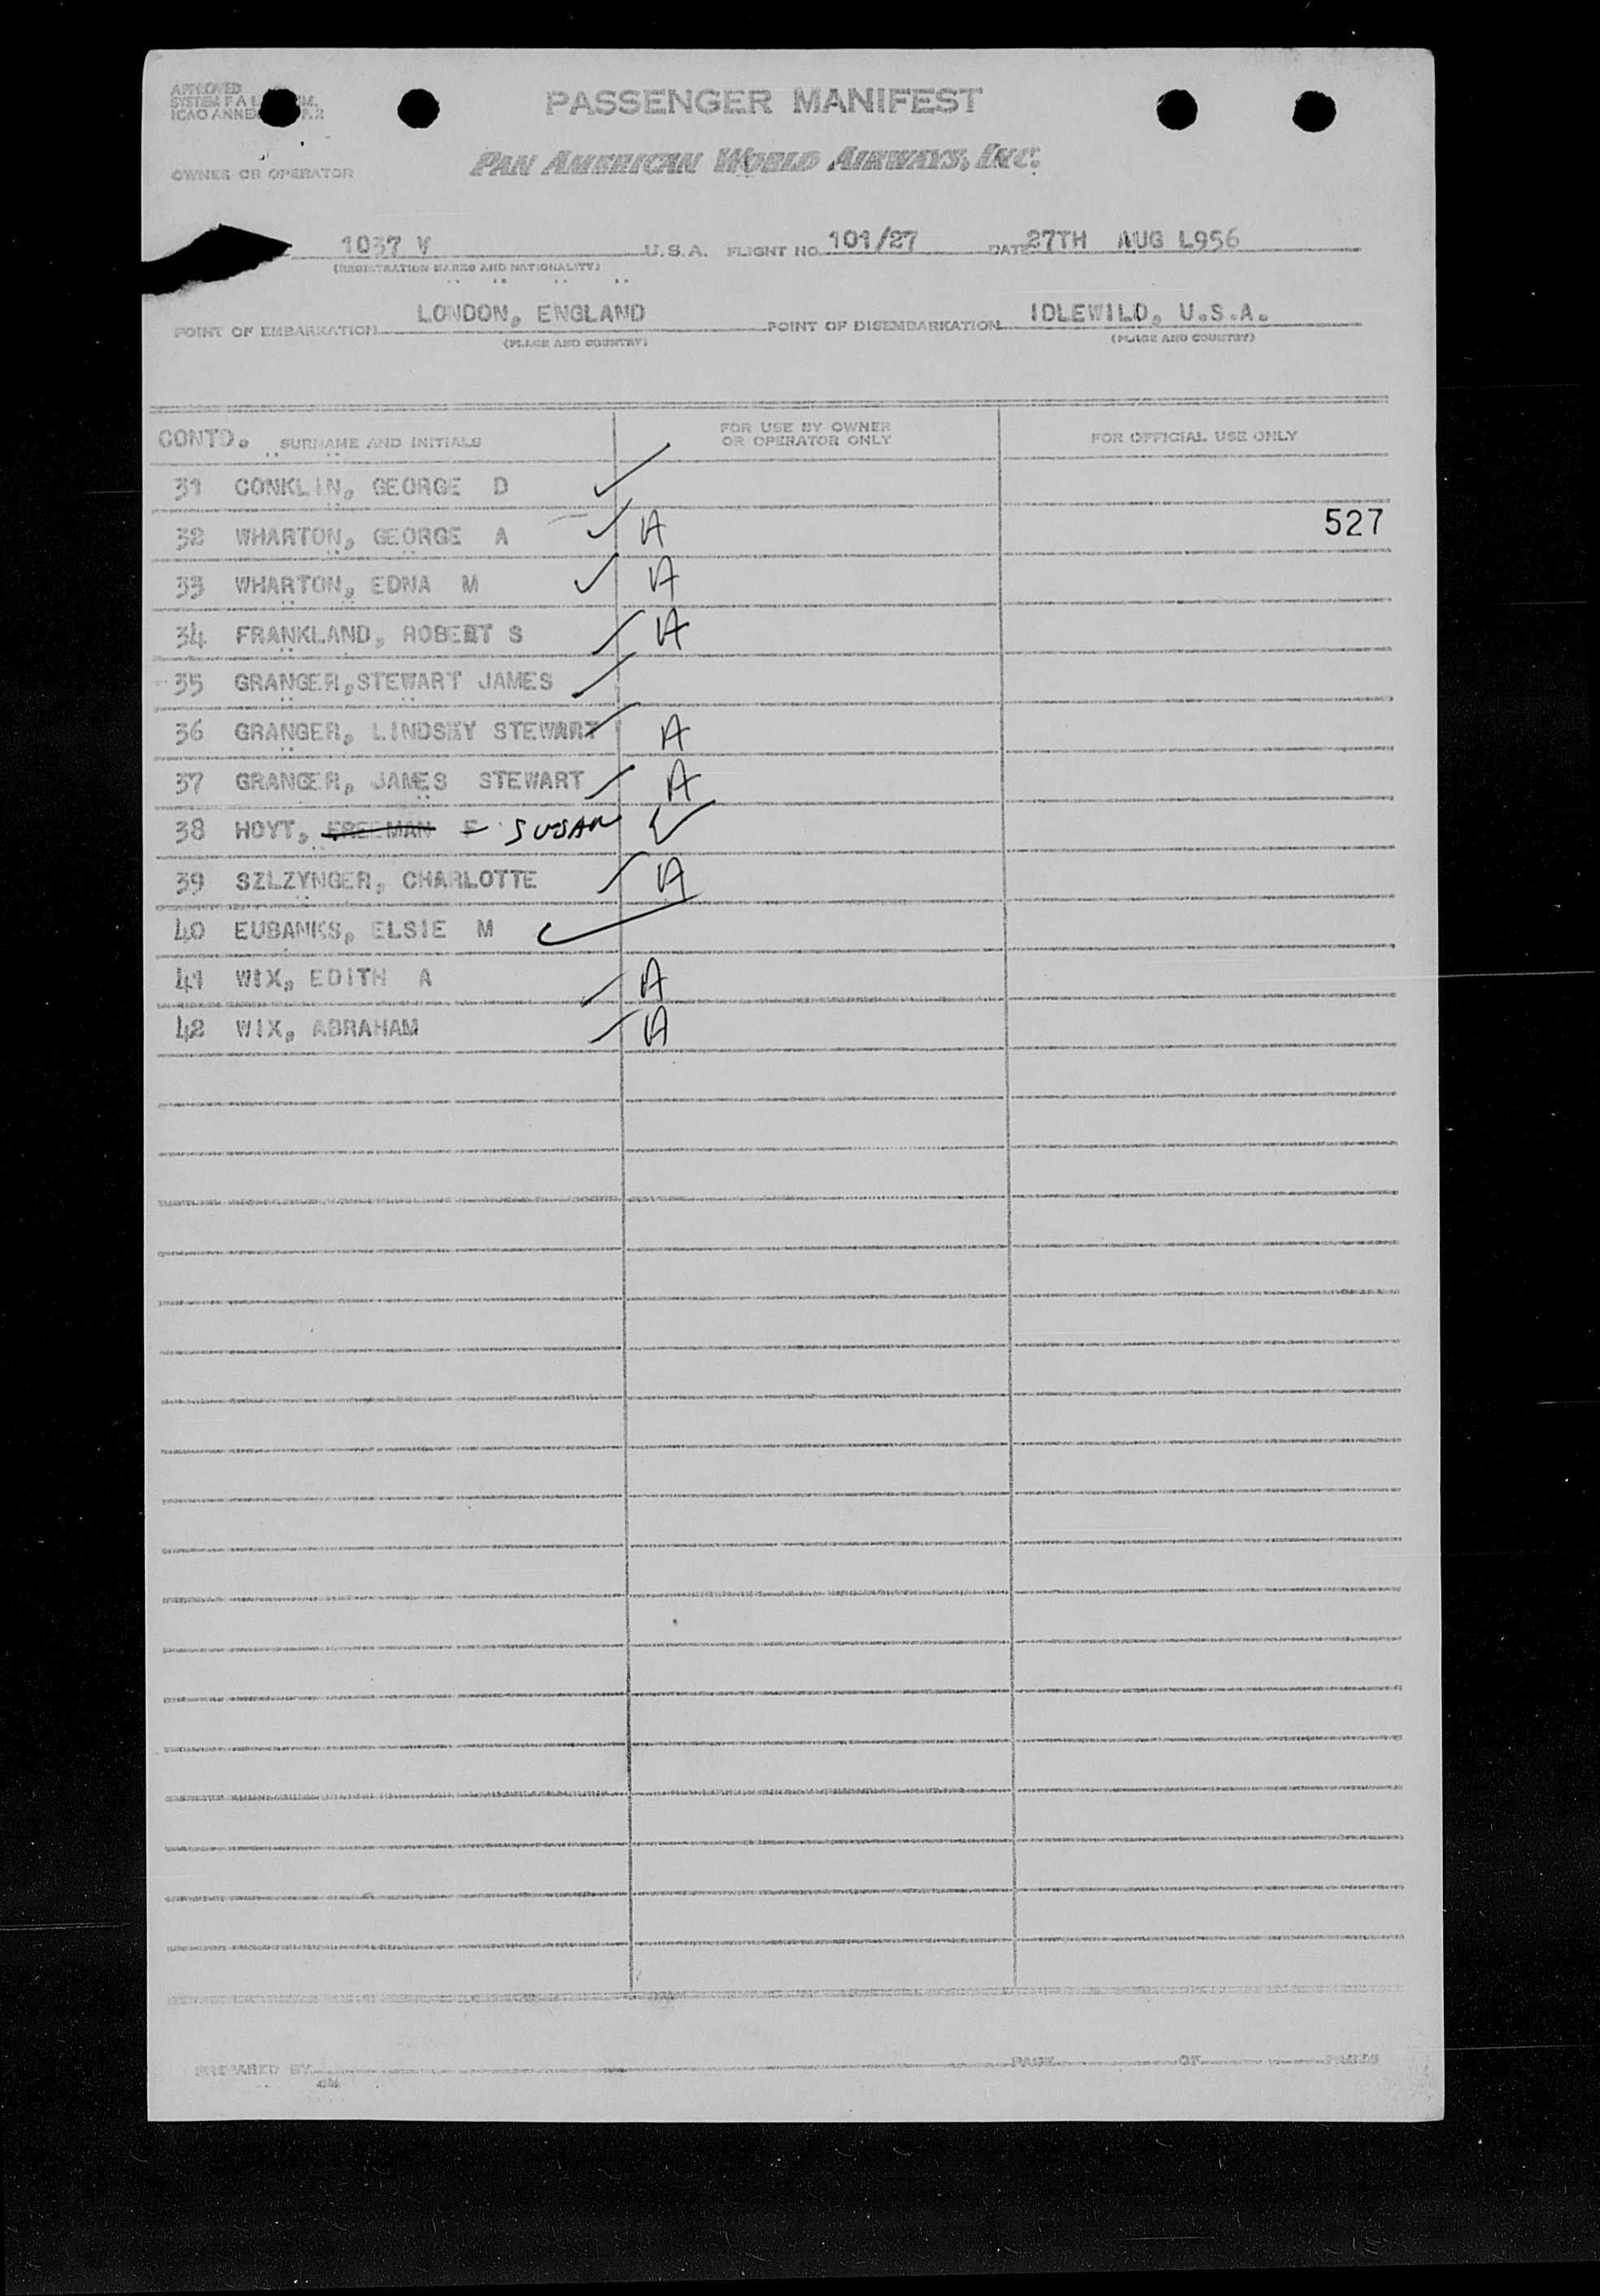 PASSENGER MANIFEST
APPROVED
SYSTEM F A L
ICAO ANNEX
PAN AMERICAN WORLD AIRWAYS, INC.
OWNER OR OPERATOR
1037 V U.S.A. FLIGHT NO. 101/27 DATE 27TH AUG L956
(REGISTRATION MARKS AND NATIONALITY)
POINT OF EMBARKATION LONDON, ENGLAND POINT OF DISEMBARKATION IDLEWILD, U.S.A.
(PLACE AND COUNTRY) (PLACE AND COUNTRY)
CONTD. SURNAME AND INITIALS FOR USE BY OWNER OR OPERATOR ONLY FOR OFFICIAL USE ONLY
31 CONKLIN, GEORGE D
32 WHARTON, GEORGE A A 527
33 WHARTON, EDNA M A
34 FRANKLAND, ROBERT S A
35 GRANGER,STEWART JAMES
36 GRANGER, LINDSAY STEWART A
37 GRANGER, JAMES STEWART A
38 HOYT, FREEMAN F SUSAN
39 SZLZYNGER, CHARLOTTE A
40 EUBANKS, ELSIE M
41 WIX, EDITH A A
42 WIX, ABRAHAM A
PREPARED BY PAGE OF PAGES